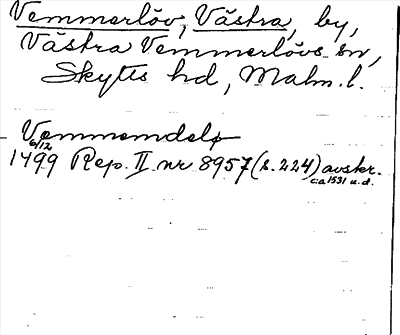 Vemmerlöv, Västra, by,
Västra Vemmerlövs sn,
Skytts hd, Malm. l.
Vemmemdelø
6/12
1499 Rep. II nr 8957 (s. 224) avskr.
ca 1531 u.d.